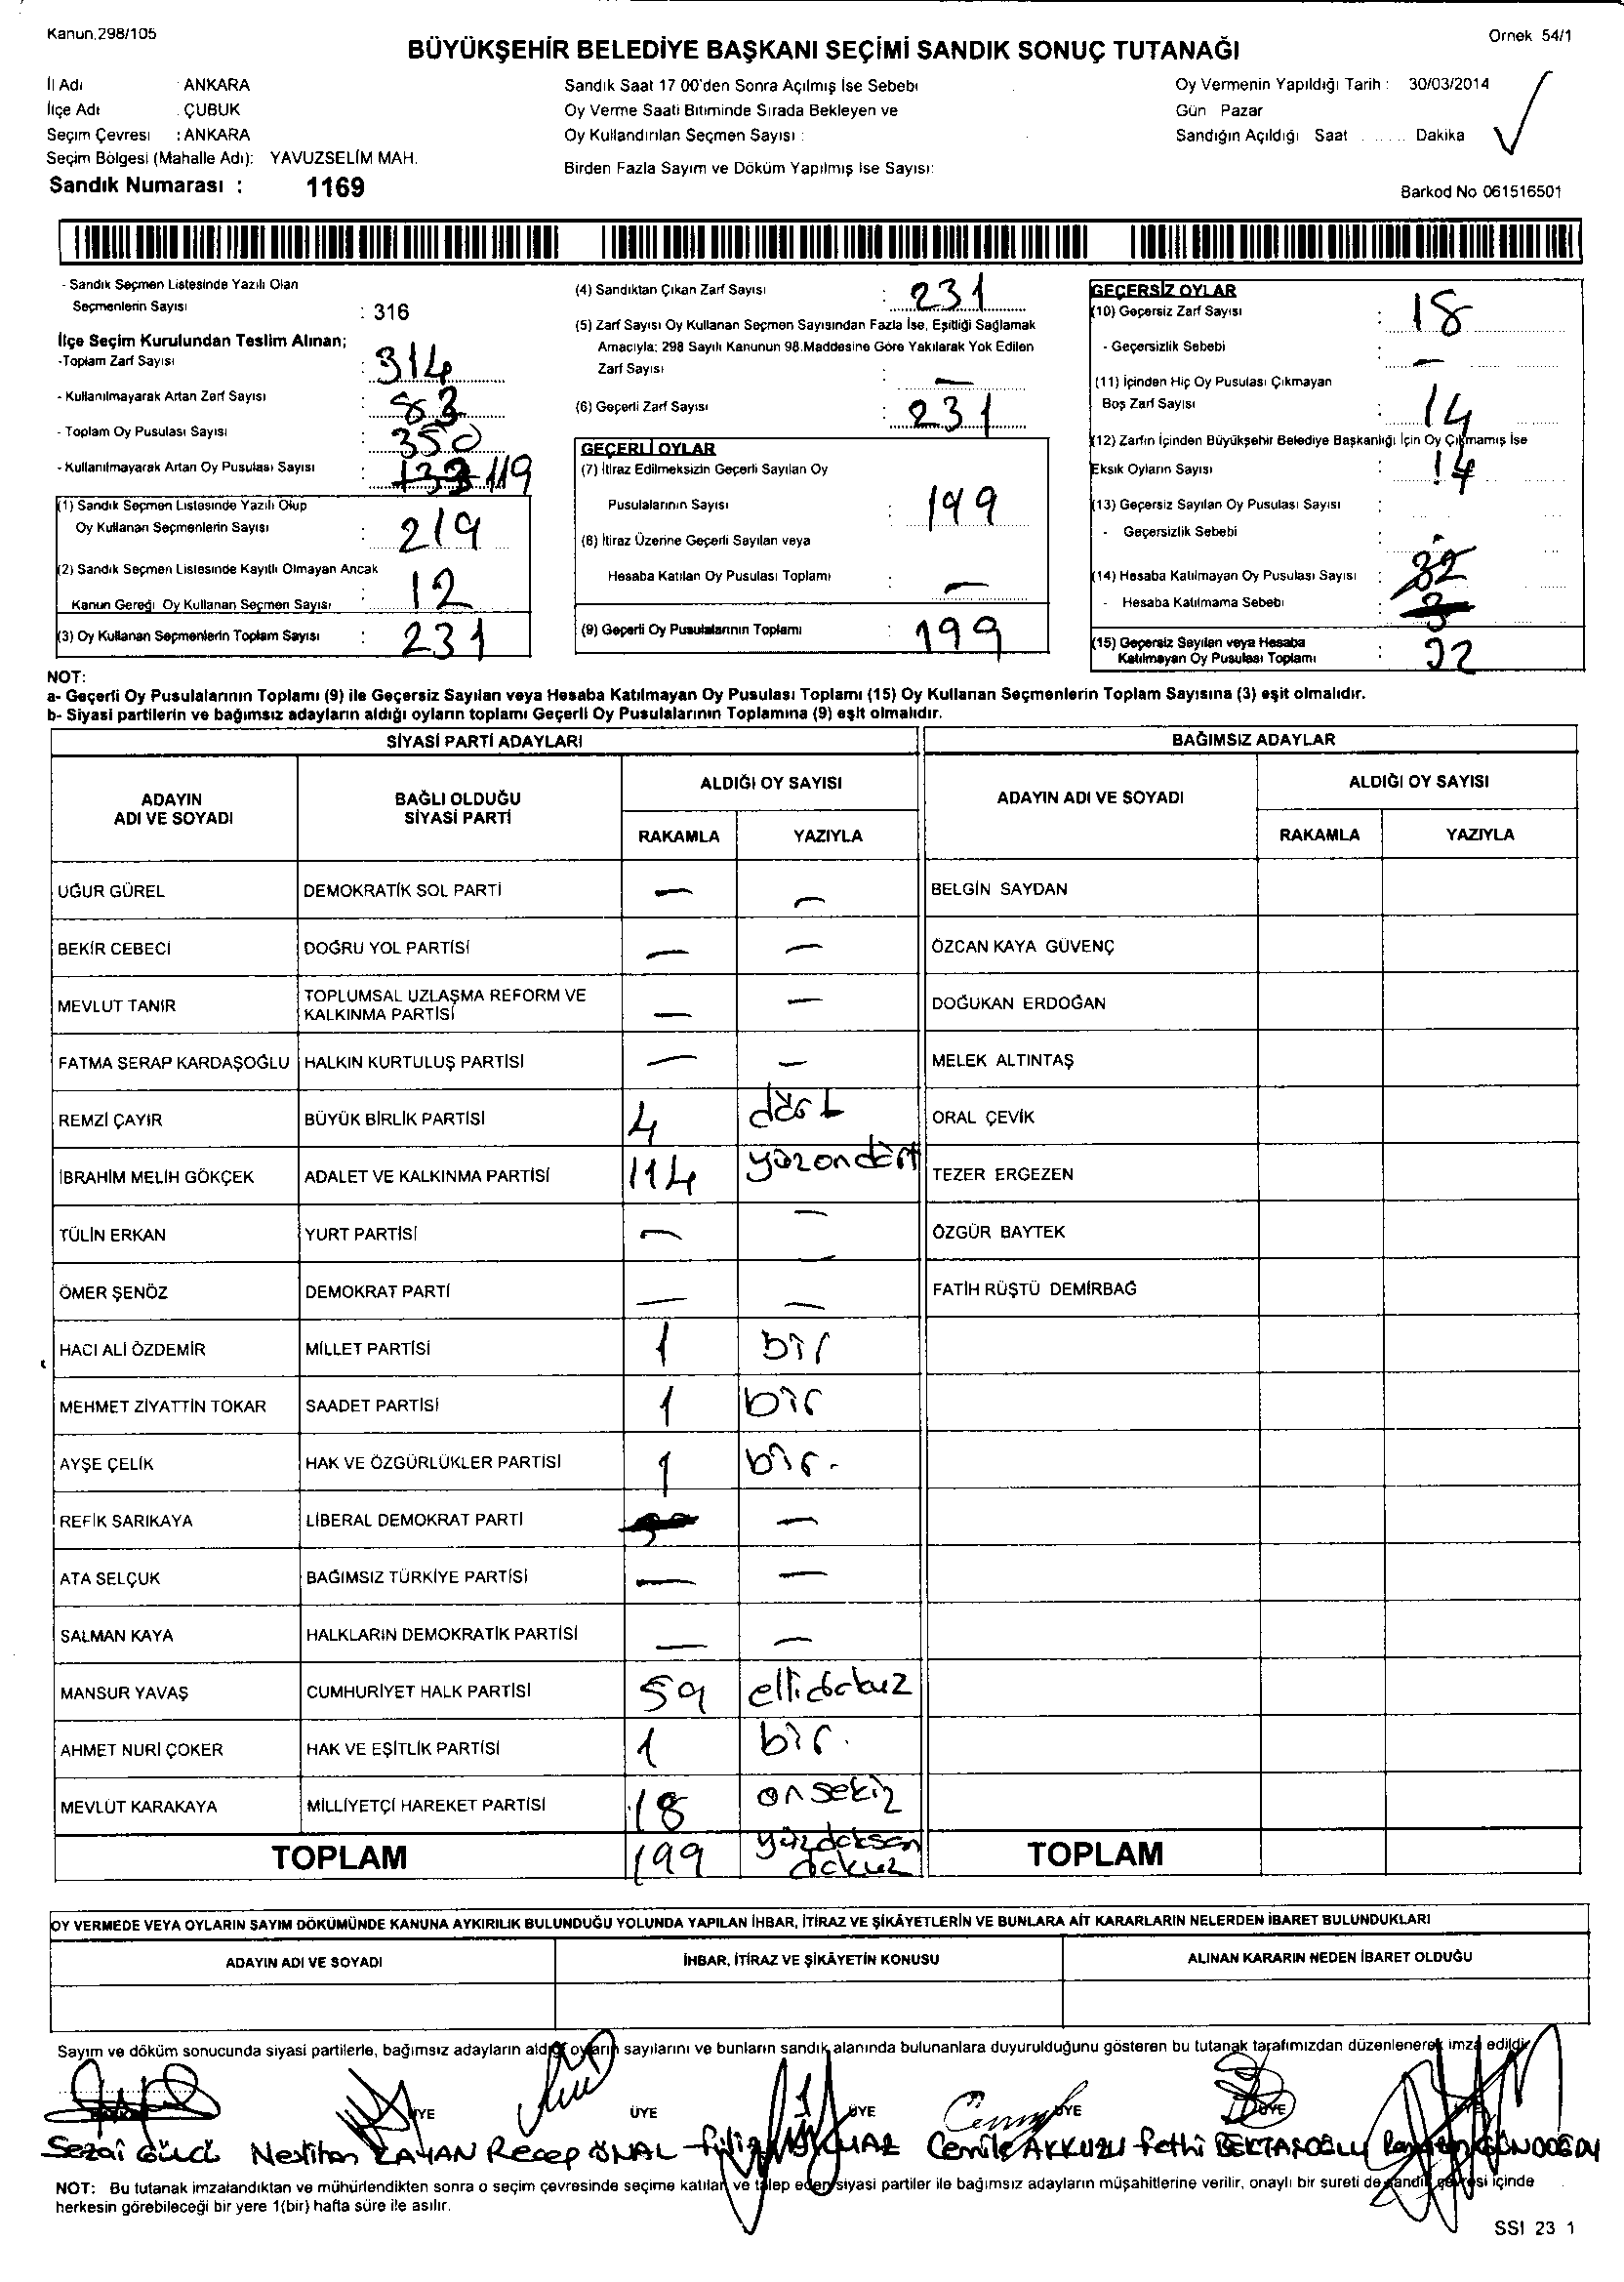 Kanun.298/105
Örnek 54/1
BÜYÜKŞEHİR BELEDİYE BAŞKANI SEÇİMİ SANDIK SONUÇ TUTANAĞI
İl Adı : ANKARA
İlçe Adı : ÇUBUK
Seçim Çevresi : ANKARA
Seçim Bölgesi (Mahalle Adı): YAVUZSELİM MAH.
Sandık Numarası : 1169
Sandık Saat 17 00'den Sonra Açılmış İse Sebebi
Oy Verme Saati Bitiminde Sırada Bekleyen ve
Oy Kullandırılan Seçmen Sayısı :
Birden Fazla Sayım ve Döküm Yapılmış İse Sayısı:
Oy Vermenin Yapıldığı Tarih : 30/03/2014
Gün Pazar
Sandığın Açıldığı Saat ...... Dakika
Barkod No 061516501
- Sandık Seçmen Listesinde Yazılı Olan
Seçmenlerin Sayısı : 316
İlçe Seçim Kurulundan Teslim Alınan;
-Toplam Zarf Sayısı : 314
- Kullanılmayarak Artan Zarf Sayısı : 83
- Toplam Oy Pusulası Sayısı : 350
- Kullanılmayarak Artan Oy Pusulası Sayısı : 119
(1) Sandık Seçmen Listesinde Yazılı Olup
Oy Kullanan Seçmenlerin Sayısı : 219
(2) Sandık Seçmen Listesinde Kayıtlı Olmayan Ancak
Kanun Gereği Oy Kullanan Seçmen Sayısı : 12
(3) Oy Kullanan Seçmenlerin Toplam Sayısı : 231
(4) Sandıktan Çıkan Zarf Sayısı : 231
(5) Zarf Sayısı Oy Kullanan Seçmen Sayısından Fazla İse, Eşitliği Sağlamak
Amacıyla; 298 Sayılı Kanunun 98.Maddesine Göre Yakılarak Yok Edilen
Zarf Sayısı : —
(6) Geçerli Zarf Sayısı : 231
GEÇERLİ OYLAR
(7) İtiraz Edilmeksizin Geçerli Sayılan Oy
Pusulalarının Sayısı : 199
(8) İtiraz Üzerine Geçerli Sayılan veya
Hesaba Katılan Oy Pusulası Toplamı : —
(9) Geçerli Oy Pusulalarının Toplamı : 199
GEÇERSİZ OYLAR
(10) Geçersiz Zarf Sayısı : 18
- Geçersizlik Sebebi : —
(11) İçinden Hiç Oy Pusulası Çıkmayan
Boş Zarf Sayısı : 14
(12) Zarfın İçinden Büyükşehir Belediye Başkanlığı İçin Oy Çıkmamış İse
Eksik Oyların Sayısı : 14
(13) Geçersiz Sayılan Oy Pusulası Sayısı :
- Geçersizlik Sebebi :
(14) Hesaba Katılmayan Oy Pusulası Sayısı : 32
- Hesaba Katılmama Sebebi :
(15) Geçersiz Sayılan veya Hesaba
Katılmayan Oy Pusulası Toplamı : 32
NOT:
a- Geçerli Oy Pusulalarının Toplamı (9) ile Geçersiz Sayılan veya Hesaba Katılmayan Oy Pusulası Toplamı (15) Oy Kullanan Seçmenlerin Toplam Sayısına (3) eşit olmalıdır.
b- Siyasi partilerin ve bağımsız adayların aldığı oyların toplamı Geçerli Oy Pusulalarının Toplamına (9) eşit olmalıdır.
SİYASİ PARTİ ADAYLARI BAĞIMSIZ ADAYLAR
ADAYIN ADI VE SOYADI BAĞLI OLDUĞU SİYASİ PARTİ ALDIĞI OY SAYISI ADAYIN ADI VE SOYADI ALDIĞI OY SAYISI
RAKAMLA YAZIYLA RAKAMLA YAZIYLA
UĞUR GÜREL DEMOKRATİK SOL PARTİ — — BELGİN SAYDAN
BEKİR CEBECİ DOĞRU YOL PARTİSİ — — ÖZCAN KAYA GÜVENÇ
MEVLUT TANIR TOPLUMSAL UZLAŞMA REFORM VE KALKINMA PARTİSİ — — DOĞUKAN ERDOĞAN
FATMA SERAP KARDAŞOĞLU HALKIN KURTULUŞ PARTİSİ — — MELEK ALTINTAŞ
REMZİ ÇAYIR BÜYÜK BİRLİK PARTİSİ 4 dört ORAL ÇEVİK
İBRAHİM MELİH GÖKÇEK ADALET VE KALKINMA PARTİSİ 114 yüzondört TEZER ERGEZEN
TÜLİN ERKAN YURT PARTİSİ — — ÖZGÜR BAYTEK
ÖMER ŞENÖZ DEMOKRAT PARTİ — — FATİH RÜŞTÜ DEMİRBAĞ
HACI ALİ ÖZDEMİR MİLLET PARTİSİ 1 bir
MEHMET ZİYATTİN TOKAR SAADET PARTİSİ 1 bir
AYŞE ÇELİK HAK VE ÖZGÜRLÜKLER PARTİSİ 1 bir.
REFİK SARIKAYA LİBERAL DEMOKRAT PARTİ —
ATA SELÇUK BAĞIMSIZ TÜRKİYE PARTİSİ — —
SALMAN KAYA HALKLARIN DEMOKRATİK PARTİSİ — —
MANSUR YAVAŞ CUMHURİYET HALK PARTİSİ 59 ellidokuz
AHMET NURİ ÇOKER HAK VE EŞİTLİK PARTİSİ 1 bir.
MEVLÜT KARAKAYA MİLLİYETÇİ HAREKET PARTİSİ 18 onsekiz
TOPLAM 199 yüzdoksan dokuz TOPLAM
OY VERMEDE VEYA OYLARIN SAYIM DÖKÜMÜNDE KANUNA AYKIRILIK BULUNDUĞU YOLUNDA YAPILAN İHBAR, İTİRAZ VE ŞİKÂYETLERİN VE BUNLARA AİT KARARLARIN NELERDEN İBARET BULUNDUKLARI
ADAYIN ADI VE SOYADI İHBAR, İTİRAZ VE ŞİKÂYETİN KONUSU ALINAN KARARIN NEDEN İBARET OLDUĞU
Sayım ve döküm sonucunda siyasi partilerle, bağımsız adayların aldığı oyların sayılarını ve bunların sandık alanında bulunanlara duyurulduğunu gösteren bu tutanak tarafımızdan düzenlenerek imza edildi
ÜYE ÜYE ÜYE ÜYE ÜYE
Sezai GÜLCÜ Neslihan Recep ÖNAL Filiz Cemile AKKUZU Fethi BEKTAŞOĞLU GÜNDOĞDU
NOT: Bu tutanak imzalandıktan ve mühürlendikten sonra o seçim çevresinde seçime katılan ve talep eden siyasi partiler ile bağımsız adayların müşahitlerine verilir, onaylı bir sureti de sandık çevresi içinde
herkesin görebileceği bir yere 1(bir) hafta süre ile asılır.
SSI 23 1